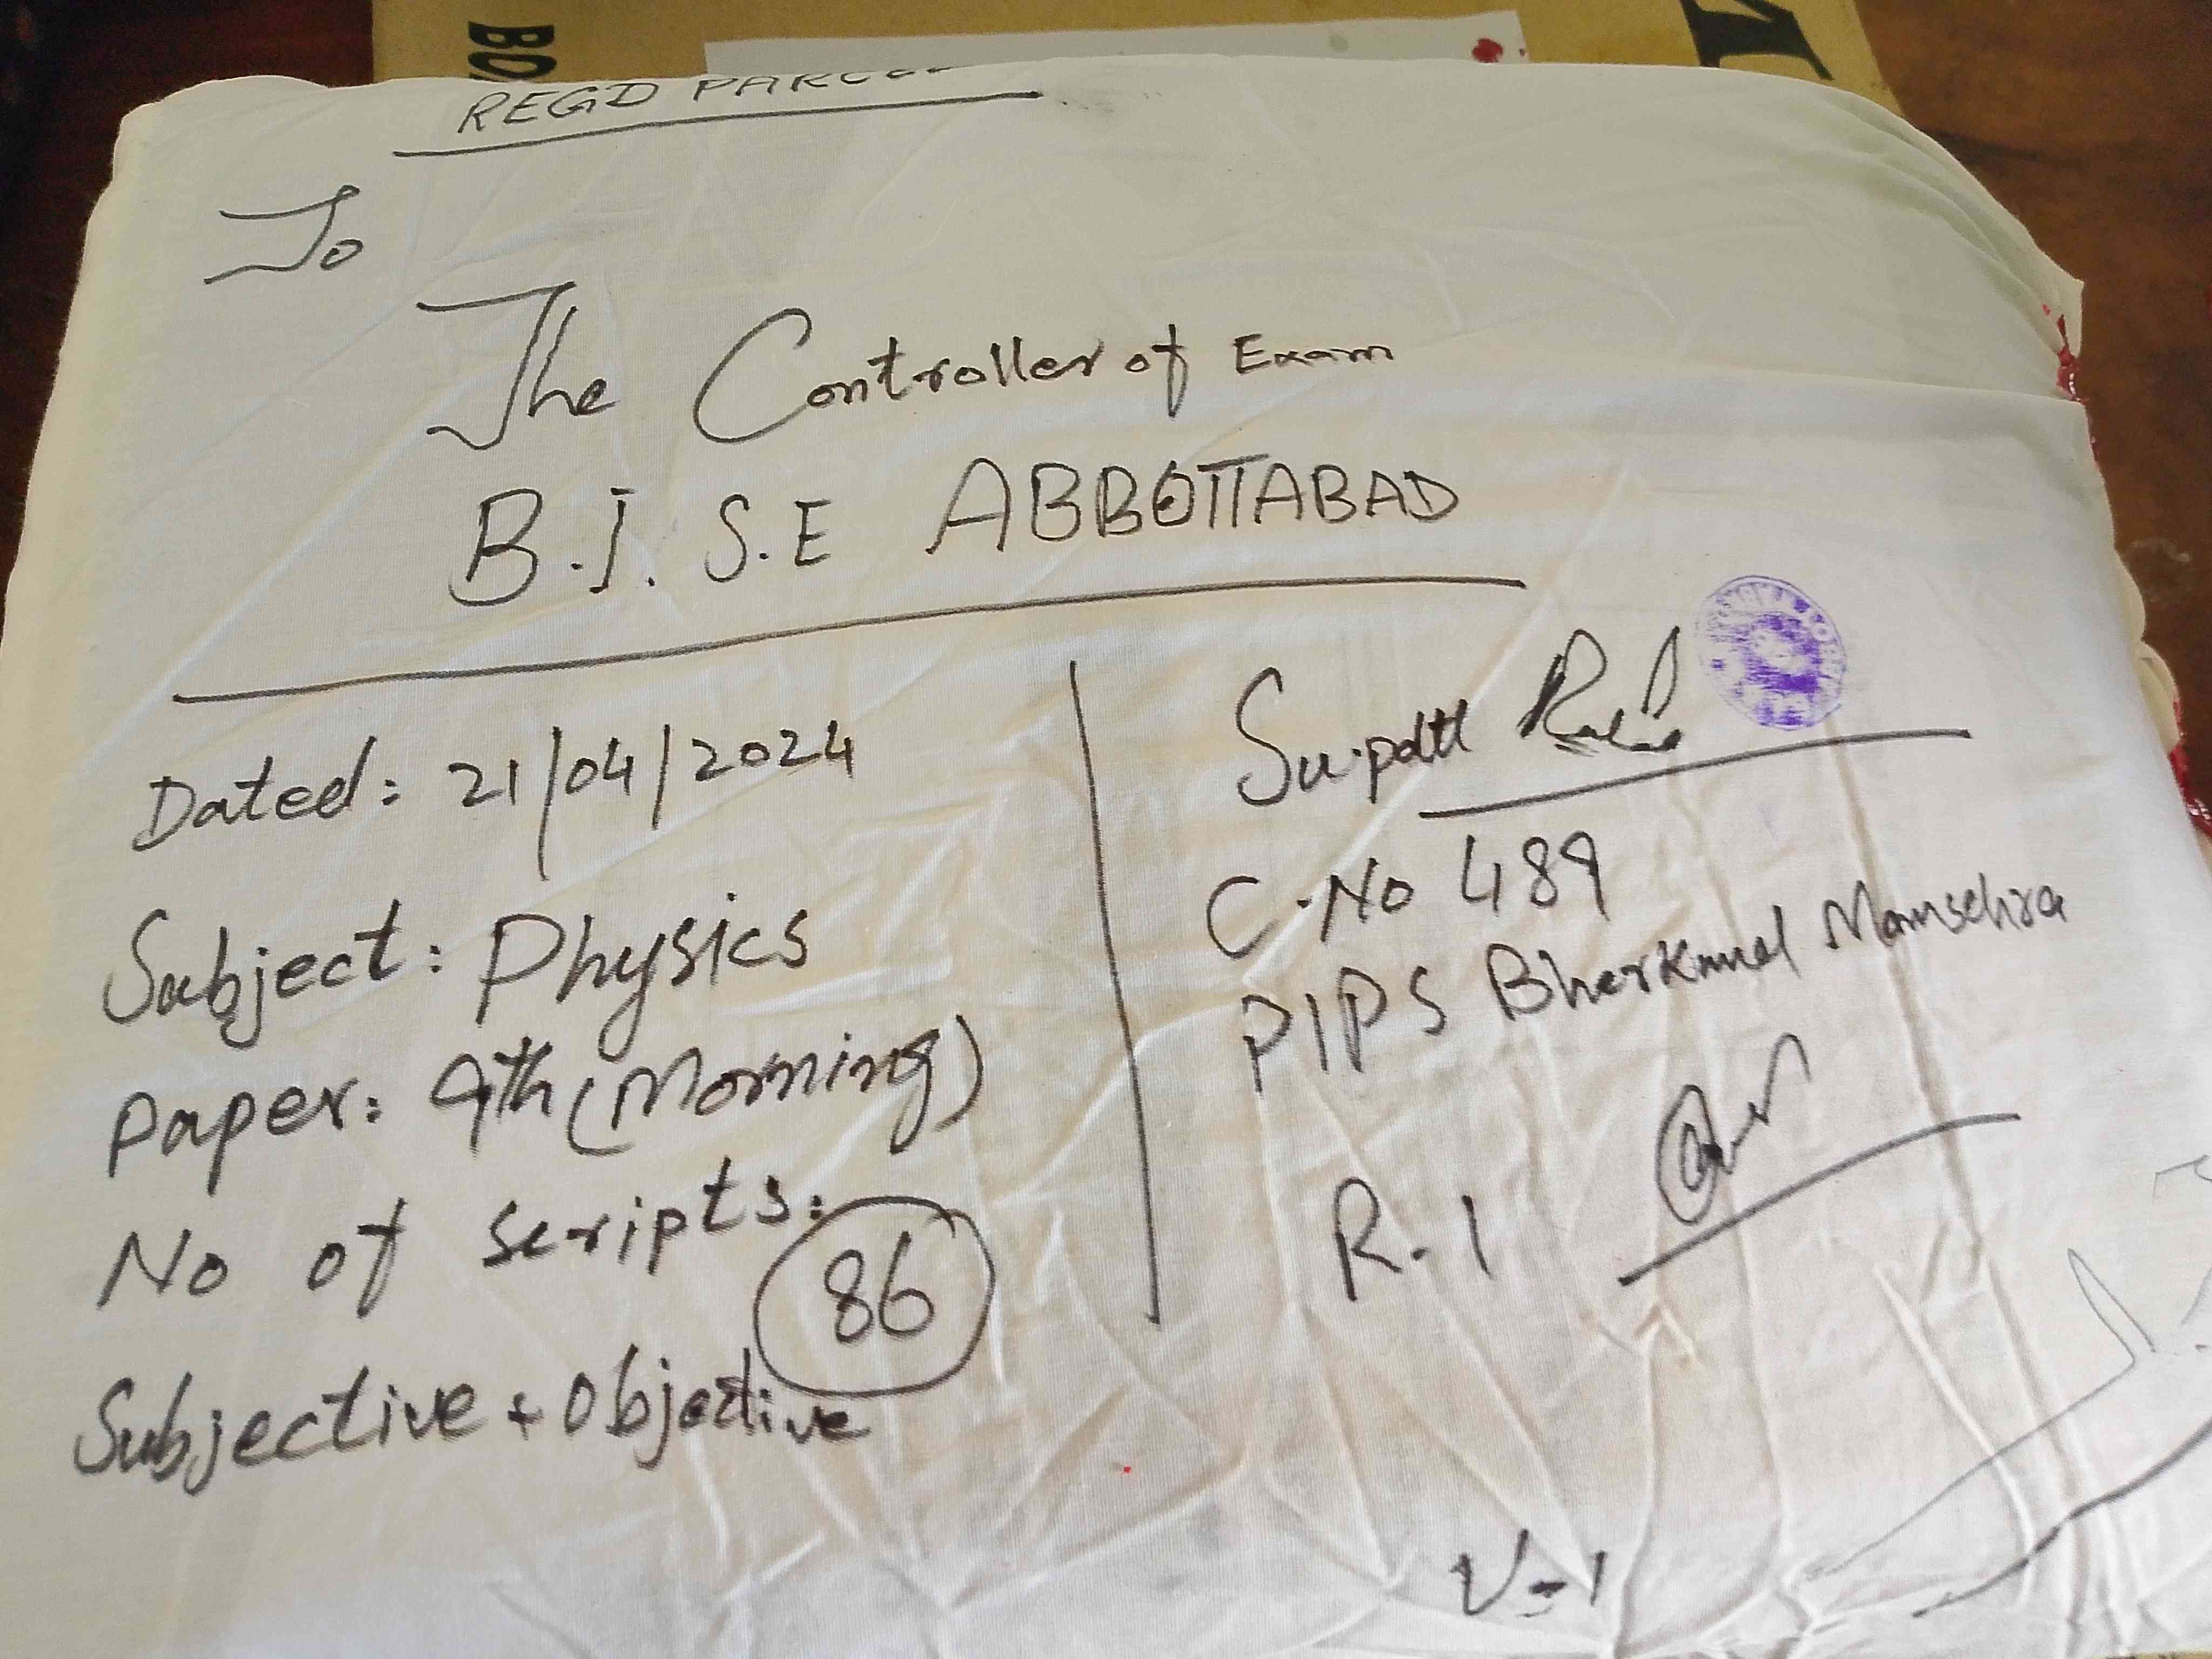 REGD PARCEL
To
The Controller of Exam
B.I.S.E ABBOTTABAD
Dated: 21/04/2024
Subject: Physics
Paper: 9th (Morning)
No of scripts: 86
Subjective + Objective
Supdtt
C.No 489
PIPS Bherkund Mansehra
R-1
V-1